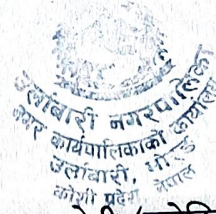 उर्लाबारी नगरपालिका
नगर कार्यपालिकाको कार्यालय
उर्लाबारी, मोरङ
कोशी प्रदेश नेपाल